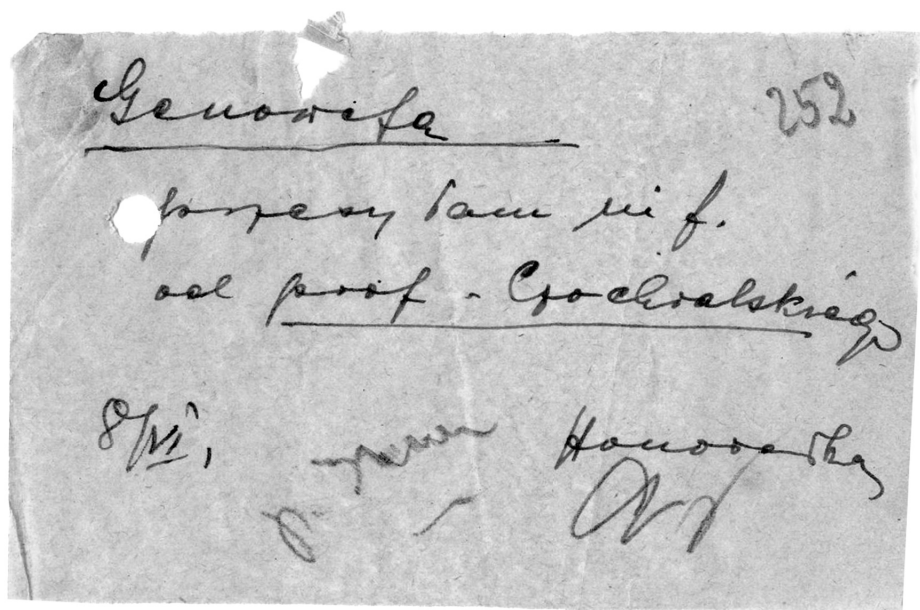 Genowefa
252
przesyłam inf.
od prof. Czochralskiego
8/VI,
Honoratka